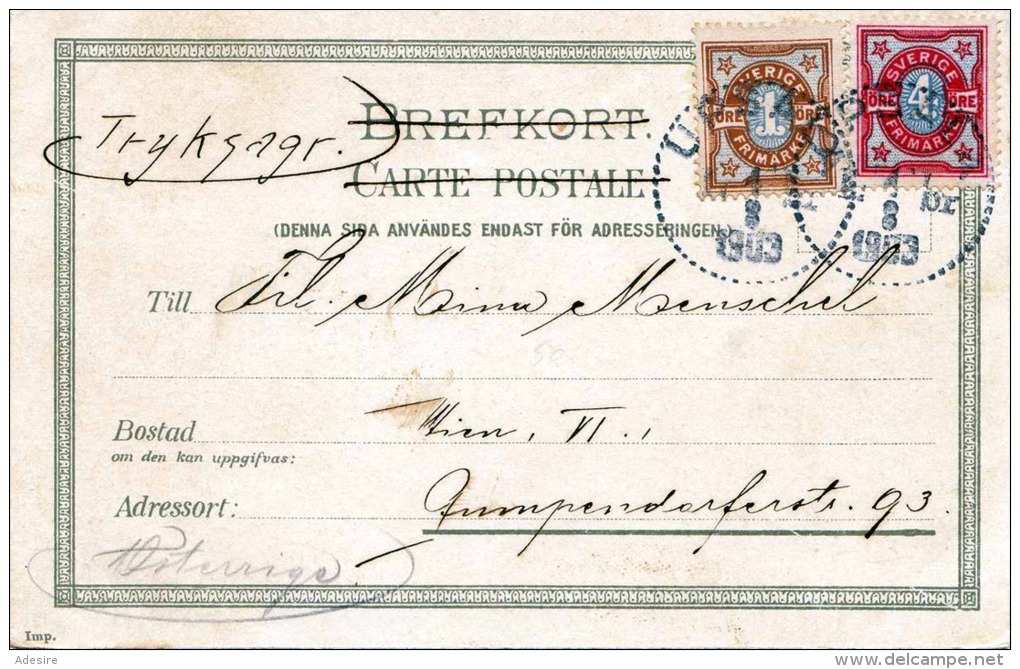 SVERIGE
ÖRE 1 ÖRE
FRIMÄRKE
SVERIGE
ÖRE 4 ÖRE
FRIMÄRKE
Tryksagr.
BREFKORT.
CARTE POSTALE
(DENNA SIDA ANVÄNDES ENDAST FÖR ADRESSERINGEN.)
1
8
1903
1
8
1903
Till Frl. Mina Menschel
50
Bostad Wien, VI.,
om den kan uppgifvas:
Adressort: Gumpendorferstr. 93.
Österrige
Imp.
Adesire
www.delcampe.net